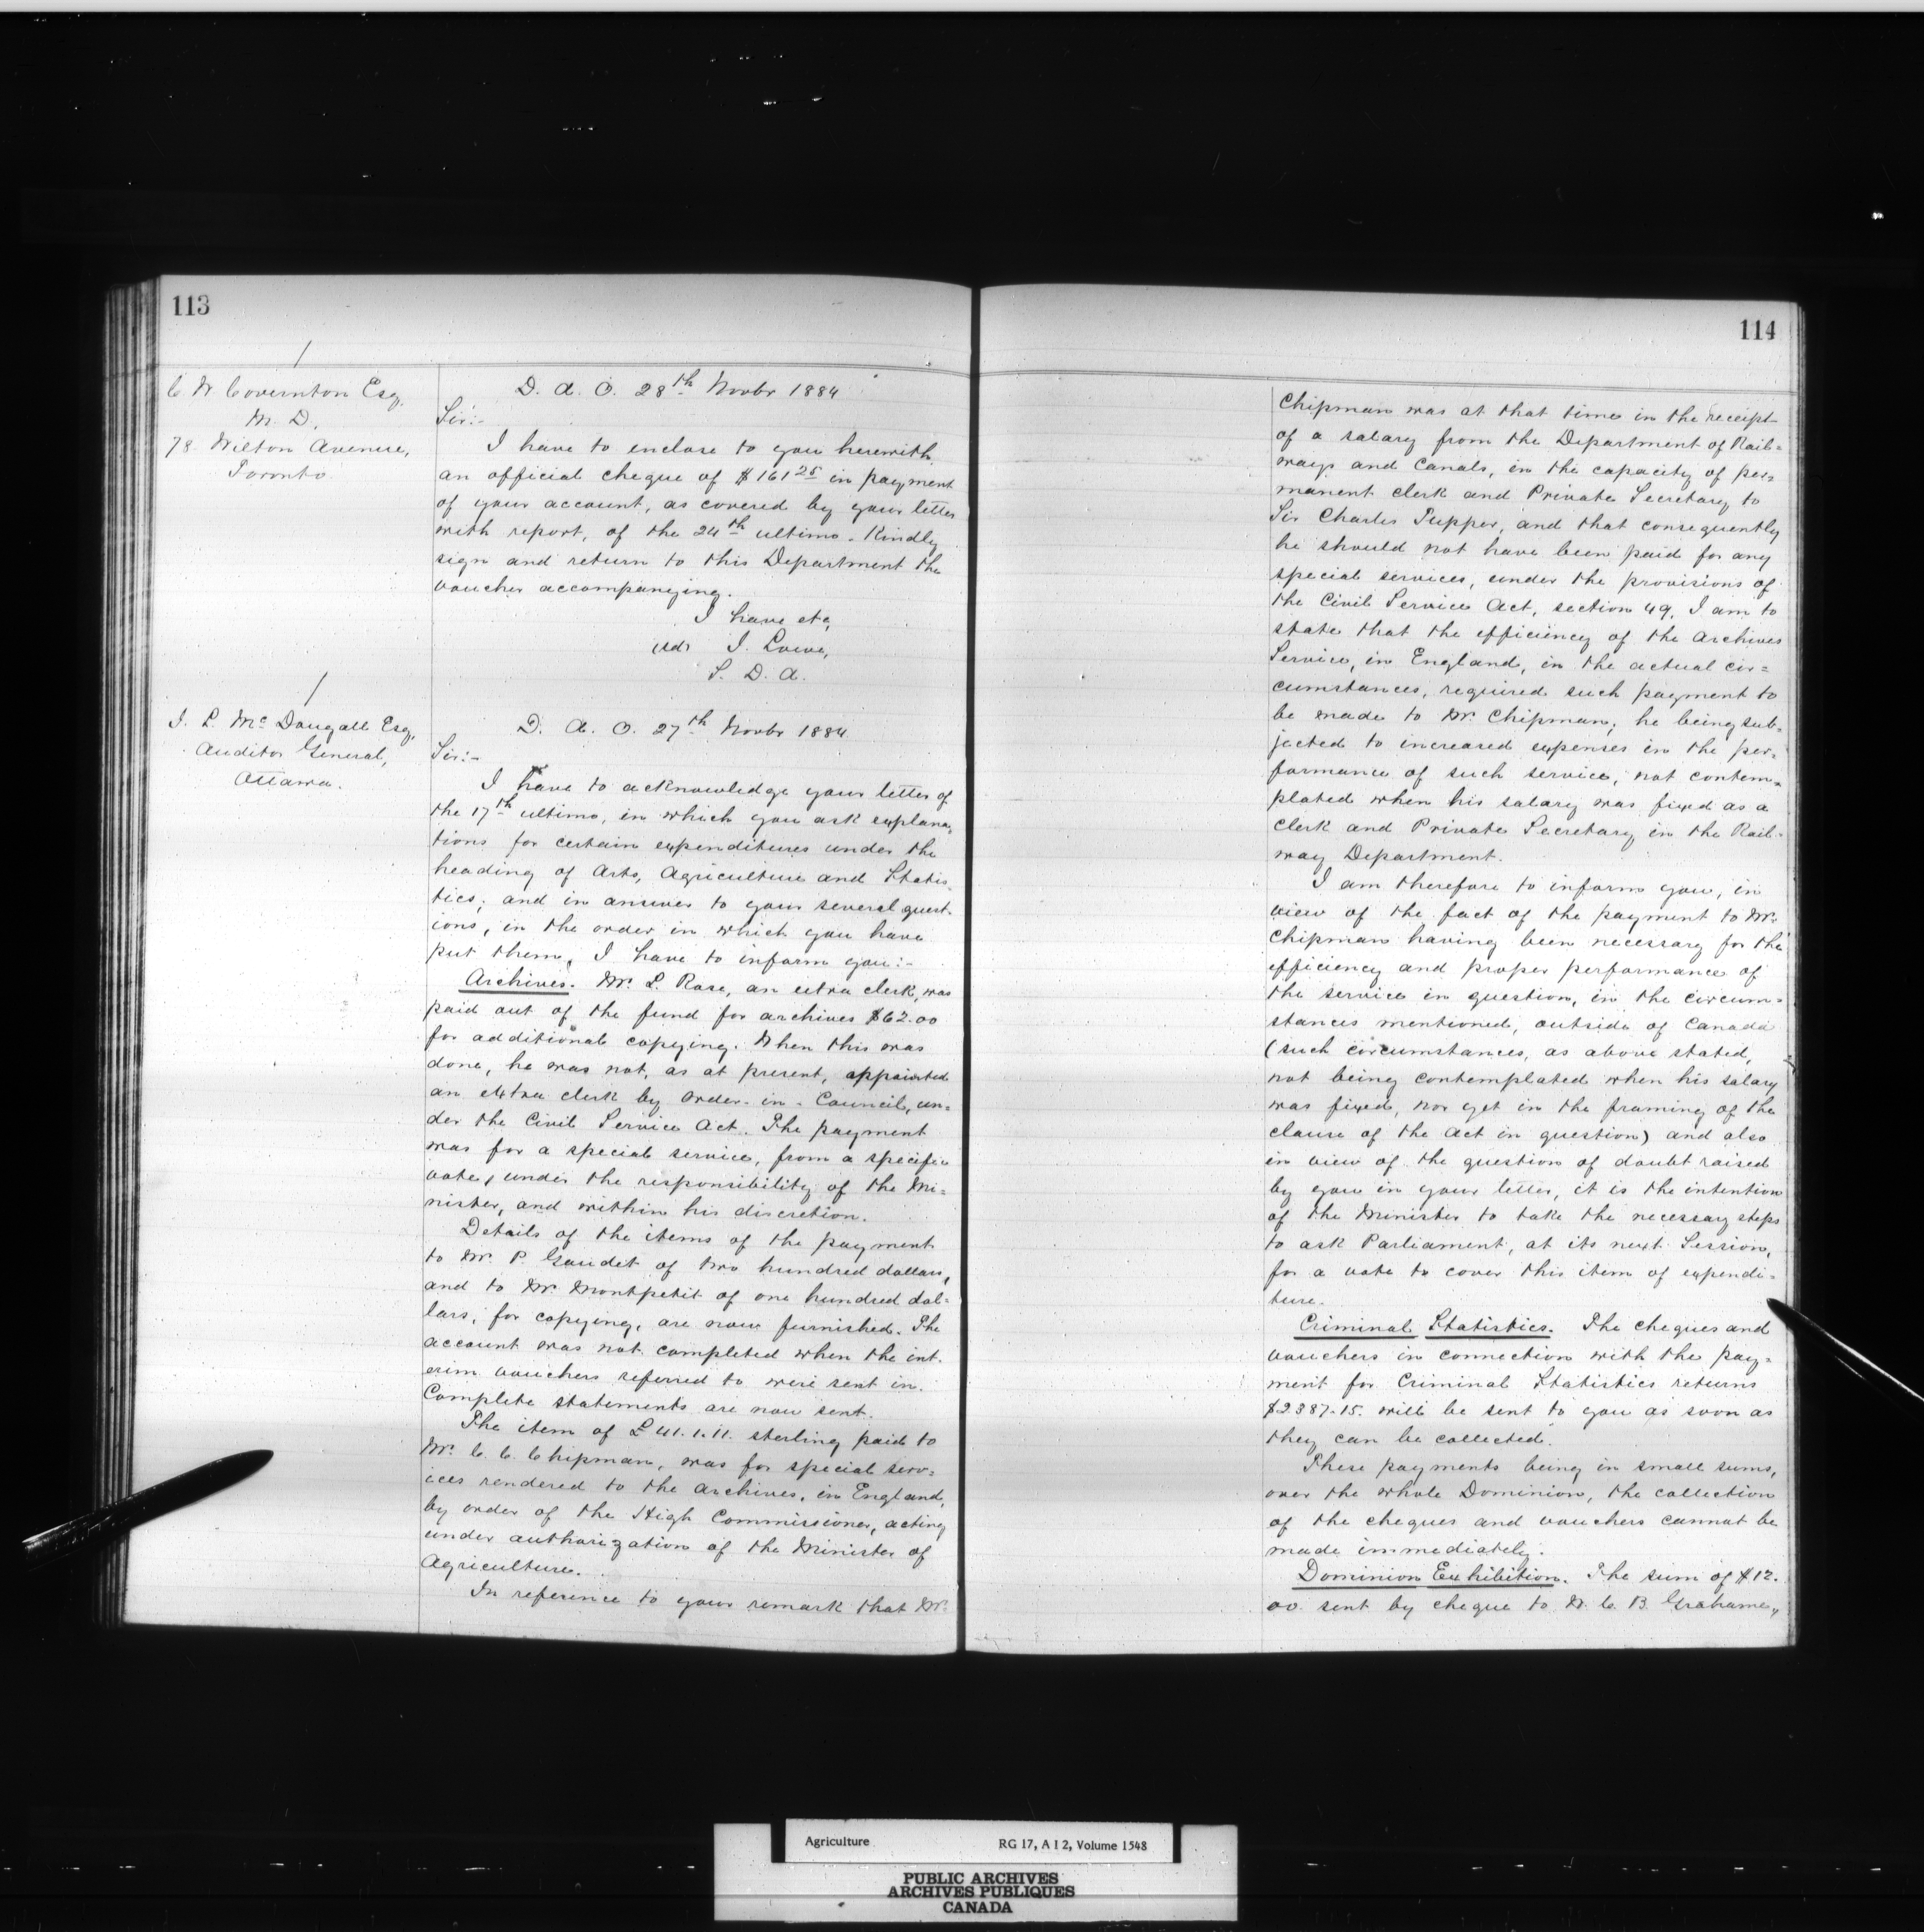 113
C W Covernton Esq.
M. D.
78 Wilton Avenue,
Toronto
D. A. O. 28th Novbr 1884
Sir:-
I have to enclose to you herewith
an official cheque of $161 25 in payment
of your account, as covered by your letter
with report, of the 24th ultimo. Kindly
sign and return to this Department the
voucher accompanying.
I have etc,
(sd) J. Lowe,
S. D. A.
J. L. McDougall Esq,
Auditor General,
Ottawa.
D. A. O. 27th Novbr 1884
Sir:-
I have to acknowledge your letter of
the 17th ultimo, in which you ask explana-
tions for certain expenditures under the
heading of Arts, Agriculture and Statis-
tics; and in answer to your several quest-
ions, in the order in which you have
put them, I have to inform you:-
Archives. Mr. L. Rose, an extra clerk, was
paid out of the fund for archives $62.00
for additional copying. When this was
done, he was not, as at present, appointed
an extra clerk by Order-in-Council, un=
der the Civil Service Act. The payment
was for a special service, from a specific
vote, under the responsibility of the Mi=
nister, and within his discretion.
Details of the items of the payment
to Mr. P. Gaudet of two hundred dollars,
and to Mr Montpetit of one hundred dol=
lars, for copying, are now furnished. The
account was not completed when the int-
erim vouchers referred to were sent in.
Complete statements are now sent.
The item of £41.1.11. sterling paid to
Mr. C. C. Chipman, was for special serv=
ices rendered to the Archives, in England,
by order of the High Commissioner, acting
under authorization of the Minister of
Agriculture.
In reference to your remark that Mr.
114
Chipman was at that time in the receipt
of a salary from the Department of Rail=
ways and Canals, in the capacity of per=
manent clerk and Private Secretary to
Sir Charles Tupper, and that consequently
he should not have been paid for any
special services, under the provisions of
the Civil Service Act, section 49, I am to
state that the efficiency of the Archives
Service, in England, in the actual cir=
cumstances, required such payment to
be made to Mr. Chipman; he being sub-
jected to increased expenses in the per-
formance of such service, not contem=
plated when his salary was fixed as a
Clerk and Private Secretary in the Rail-
way Department.
I am therefore to inform you, in
view of the fact of the payment to Mr.
Chipman having been necessary for the
efficiency and proper performance of
the service in question, in the circum=
stances mentioned, outside of Canada
(such circumstances, as above stated,
not being contemplated when his salary
was fixed, nor yet in the framing of the
clause of the Act in question) and also
in view of the question of doubt raised
by you in your letter, it is the intention
of the Minister to take the necessary steps
to ask Parliament, at its next Session,
for a vote to cover this item of expendi=
ture.
Criminal Statistics. The cheques and
vouchers in connection with the pay=
ment for Criminal Statistics returns
$2387.15. will be sent to you as soon as
they can be collected.
These payments being in small sums,
over the whole Dominion, the collection
of the cheques and vouchers cannot be
made immediately.
Dominion Exhibition. The sum of $12.
00 sent by cheque to W. C. B. Grahame,
Agriculture RG 17, A I 2, Volume 1548
PUBLIC ARCHIVES
ARCHIVES PUBLIQUES
CANADA